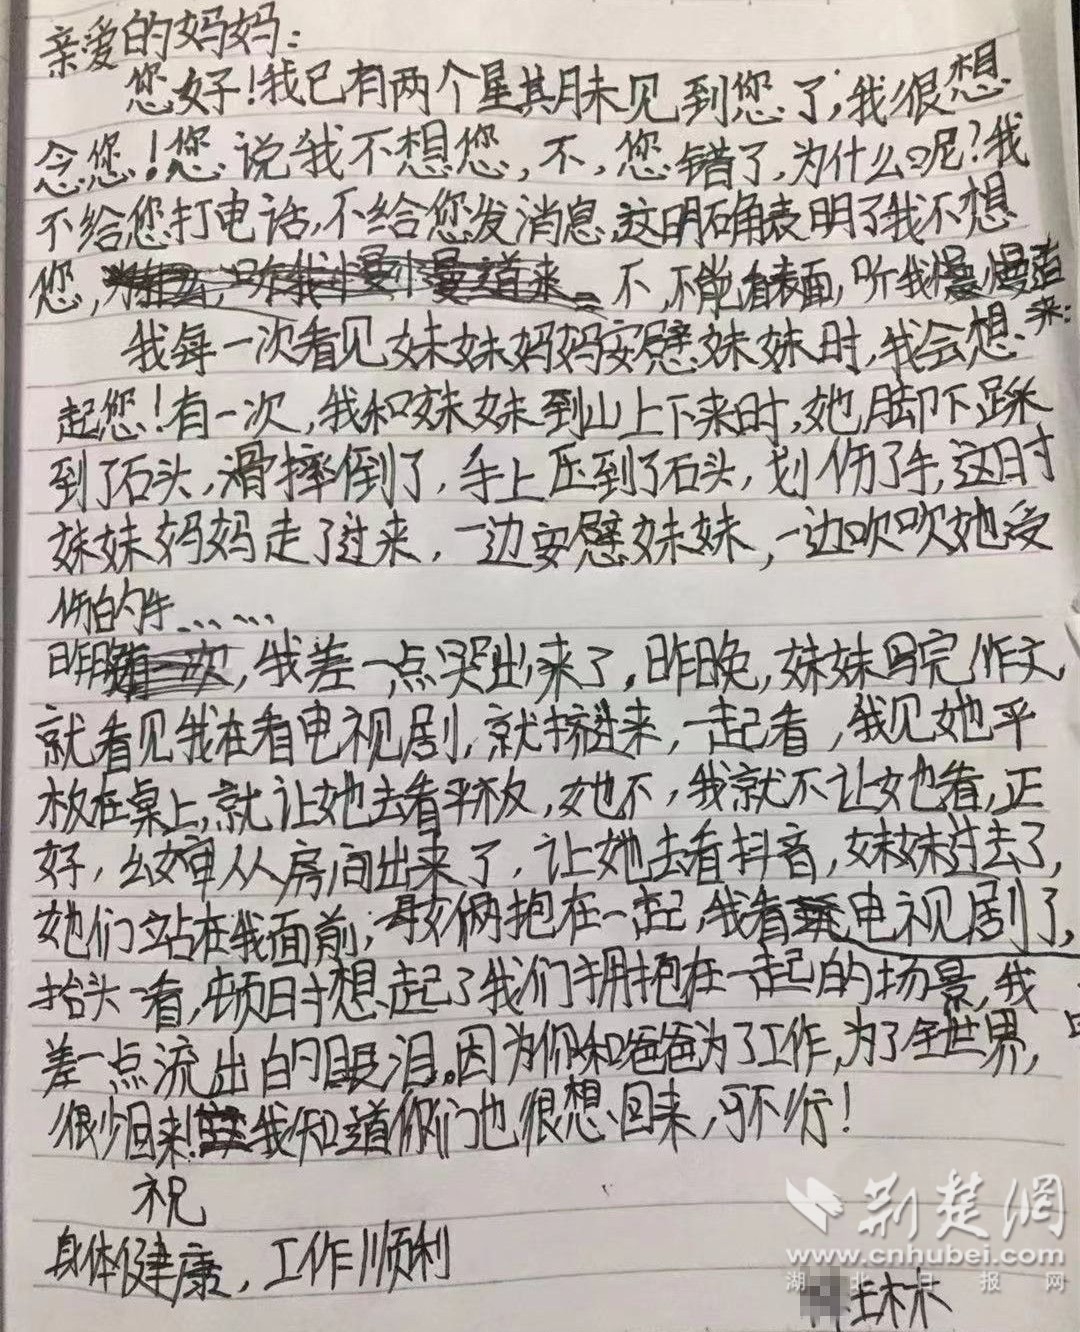 亲爱的妈妈：
您好！我已有两个星期未见到您了，我很想
念您！您说我不想您，不，您错了，为什么呢？我
不给您打电话，不给您发消息，这明确表明了我不想
您，不，不能看表面，听我慢慢道
来：
我每一次看见妹妹妈妈安慰妹妹时，我会想
起您！有一次，我和妹妹到山上下来时，她脚下踩
到了石头，滑摔倒了，手上压到了石头，划伤了手，这时
妹妹妈妈走了过来，一边安慰妹妹，一边吹吹她受
伤的手……
昨晚，我差一点哭出来了。昨晚，妹妹写完作文，
就看见我在看电视剧，就挤进来，一起看，我见她平
板在桌上，就让她去看平板，她不，我就不让她看，正
好，幺婶从房间出来了，让她去看抖音，妹妹过去了，
她们站在我面前，母女俩抱在一起，我看电视剧了，
抬头一看，顿时想起了我们拥抱在一起的场景，我
差一点流出的眼泪。因为你和爸爸为了工作，为了全世界，
很少回来！我知道你们也很想回来，可不行！
祝
身体健康，工作顺利
荆楚网
www.cnhubei.com
湖北日报网